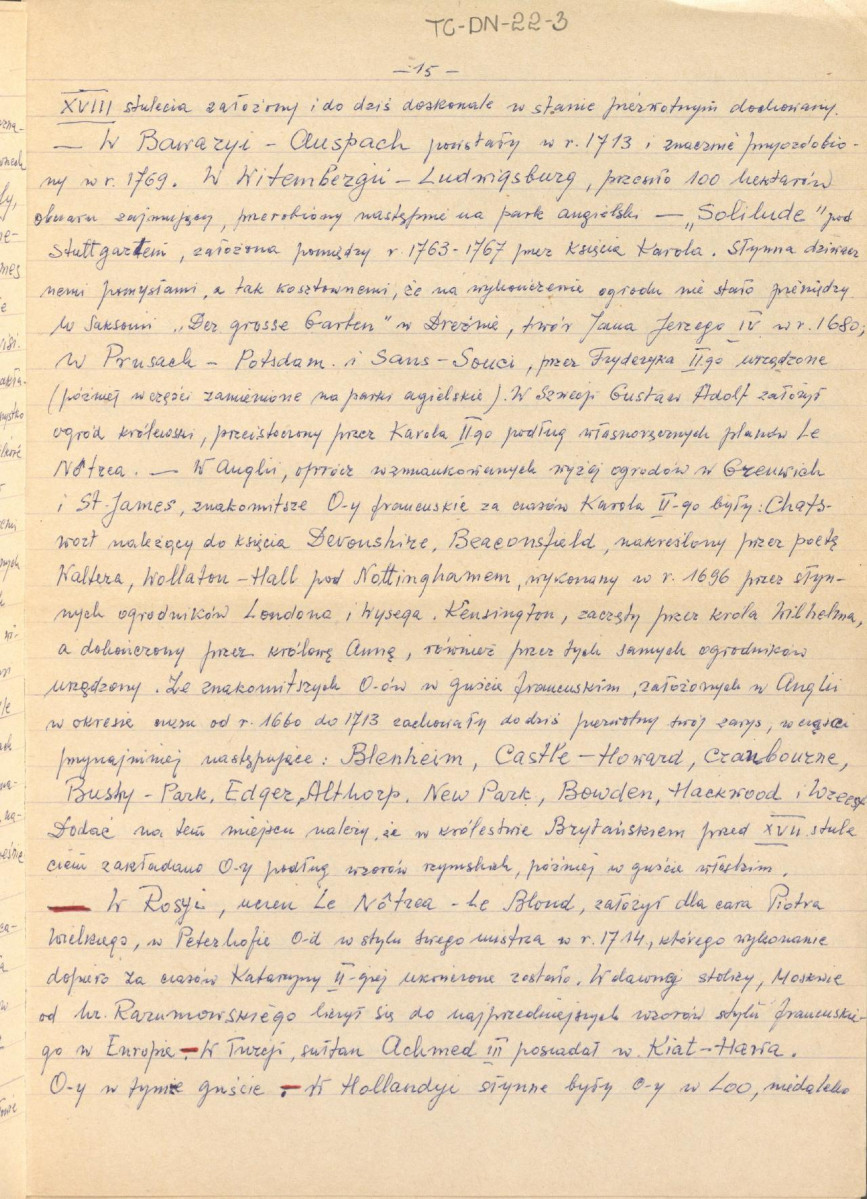 TC-DN-22-3
- 15 -
XVIII stulecia założony i do dziś doskonale w stanie pierwotnym dochowany.
— W Bawaryi - Auspach powstały w r. 1713 i znacznie przyozdobio-
ny w r. 1769. W Witembergii - Ludwigsburg, przeszło 100 hektarów
obszaru zajmujący, przerobiony następnie na park angielski — „Solilude" pod
Stuttgartem, założona pomiędzy r. 1763-1767 przez Księcia Karola. Słynna dziwacz
nemi pomysłami, a tak kosztownemi, że na wykończenie ogrodu nie stało pieniędzy
W Saksonii „Der grosse Garten" w Dreźnie, twór Jana Jerzego IV w r. 1680;
W Prusach - Potsdam i Sans-Souci, przez Fryderyka II.go urządzone
(później w części zamienione na parki agielskie). W Szwecji Gustaw Adolf założył
ogród królewski, przeistoczony przez Karola II go podług własnoręcznych planów Le
Nôtrea. — W Anglii, oprócz wzmiankowanych wyżej ogrodów w Grenwich
i St. James, znakomitsze O-y francuskie za czasów Karola II-go były: Chats-
wort należący do księcia Devonshire, Beaconsfield, nakreślony przez poetę
Waltera, Wollaton-Hall pod Nottinghamem, wykonany w r. 1696 przez słyn-
nych ogrodników Londona i Wysega. Kensington, zaczęty przez krola Wilhelma,
a dokończony przez królowę Annę, również przez tych samych ogrodników
urządzony. Ze znakomitszych O-ów w guście francuskim, założonych w Anglii
w okresie czasu od r. 1660 do 1713 zachowały do dziś pierwotny swój zarys, w części
przynajmniej następujące: Blenheim, Castle-Howard, Cranbourne,
Bushy-Park, Edger, Althorp. New Park, Bowden, Hackwood i
Dodać na tem miejscu należy, że w królestwie Brytańskiem przed XVII stule
ciem zakładano O-y podług wzorów rzymskich, później w guście włoskim.
— W Rosyi, uczeń Le Nôtrea - Le Blond, założył dla cara Piotra
Wielkiego, w Peterhofie O-d w stylu swego mistrza w r. 1714, którego wykonanie
dopiero za czasów Katarzyny II-giej ukończone zostało. W dawnej stolicy, Moskwie
od hr. Razumowskiego liczył się do najprzedniejszych wzorów stylu francuskie-
go w Europie. — W Turcji, sułtan Achmed III posiadał w Kiat-Hawa.
O-y w tymże guście. — W Hollandyi słynne były O-y w Loo, niedaleko